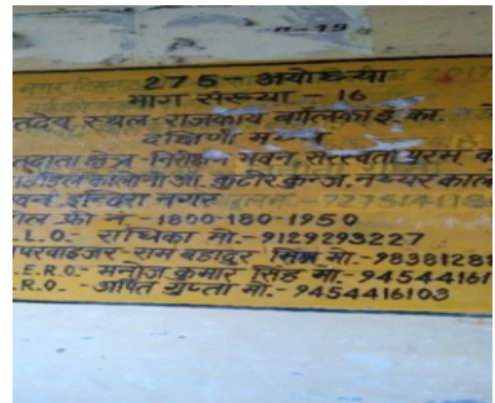 275 - अयोध्या
भाग संख्या - 16
तदेय स्थल - राजकीय बालिका इ. का.
दक्षिणी
तदाता क्षेत्र - निरीक्षण भवन, सरस्वती पुरम
कालोनी ऑ. कुटीर कुन्ज. नय्यर काल
इन्दिरा नगर
फ्री नं - 1800-180-1950
.L.O.- राधिका मो.- 9129293227
परवाइजर - राम बहादुर मिश्र मो -98381281
.E.R.O.- मनोज कुमार सिंह मो.- 94544161
.R.O.- अर्पित गुप्ता मो.- 9454416103